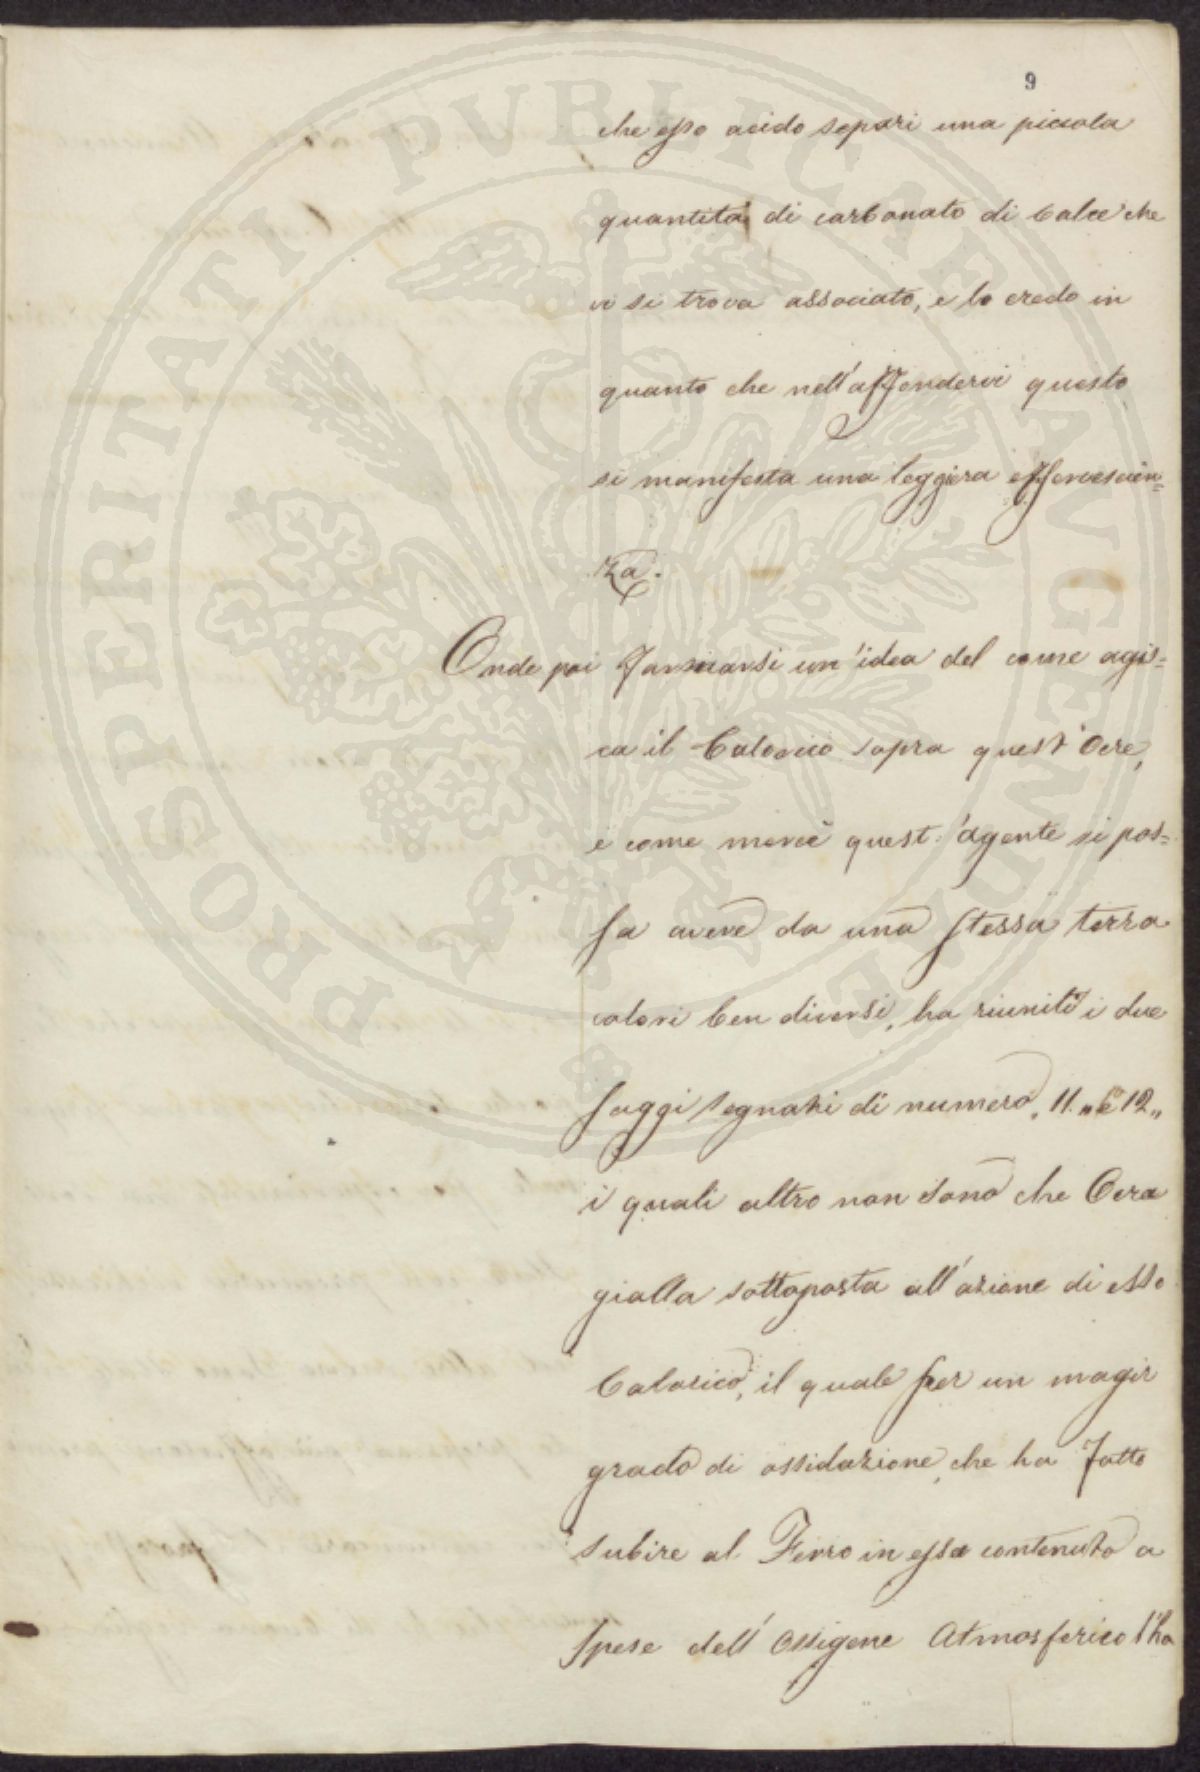 9
che esso acido separi una piccola
quantità di carbonato di Calce che
vi si trova associato, e lo credo in
quanto che nell'affondervi questo
si manifesta una leggiera effervescien=
za.
Onde poi formarsi un'idea del come agis=
ca il Calorico sopra quest'Ocre,
e come mercè quest'agente si pos=
sa avere da una stessa terra
colori ben diversi, ho riuniti i due
saggi segnati di numero, 11 „ e 12 „
i quali altro non sono che Ocra
gialla sottoposta all'azione di esso
Calorico, il quale per un magir
grado di ossidazione, che ha fatto
subire al Ferro in essa contenuto a
spese dell'Ossigene Atmosferico l'ha
PROSPERITATI PVBLICAE AVGENDAE